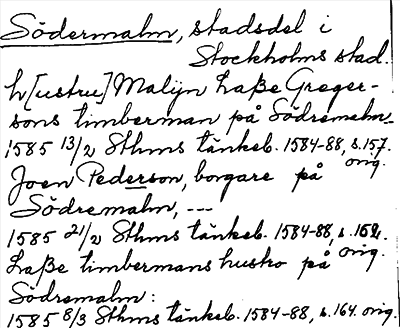 Södermalm, stadsdel i
Stockholms stad.
h[ustru] Malijn Laße Greger-
sons timberman på Södremalm.
1585 13/2 Sthms tänkeb. 1584-88, s. 157. orig.
Joen Pederson, borgare på
Södremalm, ---
1585 21/2 Sthms tänkeb. 1584-88, s. 162. orig.
Laße timbermans husko på
Södremalm:
1585 8/3 Sthms tänkeb. 1584-88, s. 164. orig.